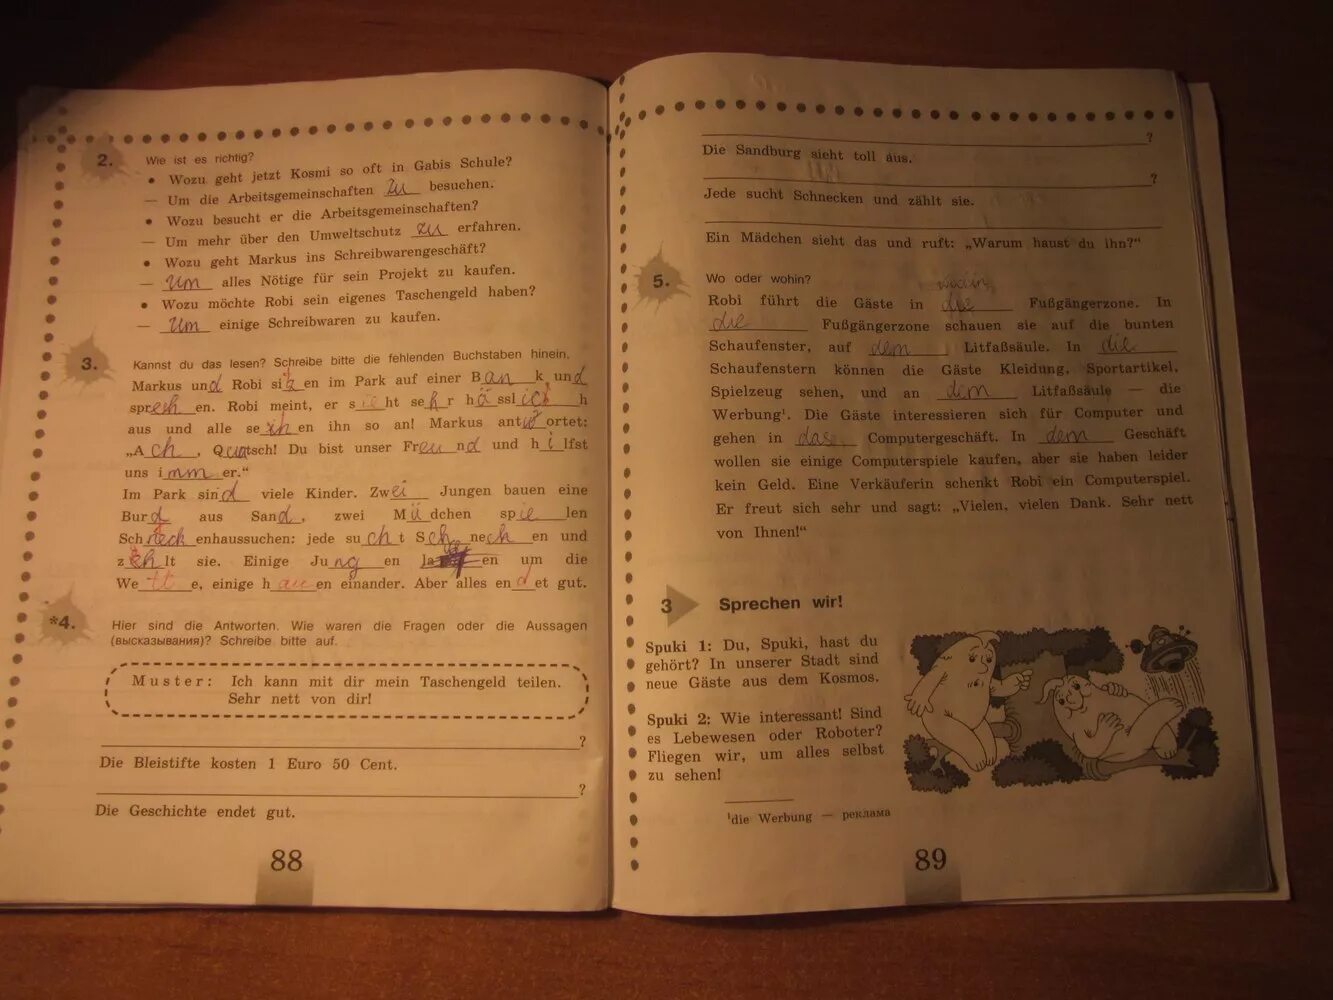 2. Wie ist es richtig?
• Wozu geht jetzt Kosmi so oft in Gabis Schule?
— Um die Arbeitsgemeinschaften zu besuchen.
• Wozu besucht er die Arbeitsgemeinschaften?
— Um mehr über den Umweltschutz zu erfahren.
• Wozu geht Markus ins Schreibwarengeschäft?
— Um alles Nötige für sein Projekt zu kaufen.
• Wozu möchte Robi sein eigenes Taschengeld haben?
— Um einige Schreibwaren zu kaufen.
3. Kannst du das lesen? Schreibe bitte die fehlenden Buchstaben hinein.
Markus und Robi sitzen im Park auf einer Bank, und
sprechen. Robi meint, er sieht sehr hässlich
aus und alle sehen ihn so an! Markus antwortet:
„Ach, Quatsch! Du bist unser Freund und hilfst
uns immer.“
Im Park sind viele Kinder. Zwei Jungen bauen eine
Burd aus Sand, zwei Mädchen spielen
Schneckenhaussuchen: jede sucht Schnecken und
zählt sie. Einige Jungen la en um die
Wette, einige hauen einander. Aber alles endet gut.
*4. Hier sind die Antworten. Wie waren die Fragen oder die Aussagen
(высказывания)? Schreibe bitte auf.
Muster: Ich kann mit dir mein Taschengeld teilen.
Sehr nett von dir!
?
Die Bleistifte kosten 1 Euro 50 Cent.
?
Die Geschichte endet gut.
88
?
Die Sandburg sieht toll aus.
?
Jede sucht Schnecken und zählt sie.
Ein Mädchen sieht das und ruft: „Warum haust du ihn?“
5. Wo oder wohin?
Robi führt die Gäste in die Fußgängerzone. In
die Fußgängerzone schauen sie auf die bunten
Schaufenster, auf dem Litfaßsäule. In die
Schaufenstern können die Gäste Kleidung, Sportartikel,
Spielzeug sehen, und an dem Litfaßsäule — die
Werbung¹. Die Gäste interessieren sich für Computer und
gehen in dase Computergeschäft. In dem Geschäft
wollen sie einige Computerspiele kaufen, aber sie haben leider
kein Geld. Eine Verkäuferin schenkt Robi ein Computerspiel.
Er freut sich sehr und sagt: „Vielen, vielen Dank. Sehr nett
von Ihnen!“
3 Sprechen wir!
Spuki 1: Du, Spuki, hast du
gehört? In unserer Stadt sind
neue Gäste aus dem Kosmos.
Spuki 2: Wie interessant! Sind
es Lebewesen oder Roboter?
Fliegen wir, um alles selbst
zu sehen!
¹die Werbung — реклама
89